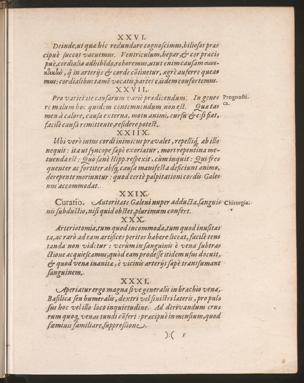 XXVI.
Deinde, ut qua hoc redundare cognoscimus, biliosas præ
cipuè succos vacuemus. Ventriculum, hepar, & cor præci
puè, cordialia adhibēdo, roboremus, utut enim causam
q̃ in arterijs & corde cōtinetur, agrè auferre quea
mus: cordialibus tamē vocatis partes eædem confortemus.
XXVII.
Pro varietate causarum variè prædicendum: In genere
malum hoc quidem contemnendum non est. Quatas
men à calore, causa externa, motu animi, cursu & c. si fiat,
facilè causa remittente, residere potest.
XXIIX.
Ubi verò intus cordi inimicus prævalet, repellitq́, ab ille
nequit: ita ut syncope sæpè exoriatur, mors repentina me-
tuenda est: Quo sanè Hipp. respexit, cùm inquit: Qui fre
quenter ac fortiter absq́, causa manifesta deficiunt animo,
derepentè moriuntur: quod certè palpitationi cordis Gale
nus accommodat.
XXIX.
Curatio. Autoritate Galeni nuper adducta, sangui
nis subductio, nisi quid obstet, plurimum confert.
XXX.
Arteriotomia, tum quod incommoda, tum quod inusita
ta, ac rarò ad eam artifices peritos habere liceat, facilè ten
tanda non videtur: verùm in sanguinis è vena subtra
ctione acquiescamus, quòd eam prodesse itidem usus docuit,
& quod vena inanita, è vicinis arterijs sæpè transumant
sanguinem.
XXXI.
Aperiatur ergo magna sive generalis in brachio vena,
Basilica seu humeralis, dextri vel sinistri lateris, pro pulsu
sus hoc vel loco inquietudine. Ad derivandum crus
rum quoq́, venas tundi cōfert: præcipuè in mensium, quod
fœminis familiare, suppressione.
):(
Prognosti-
ca.
Chirurgia.